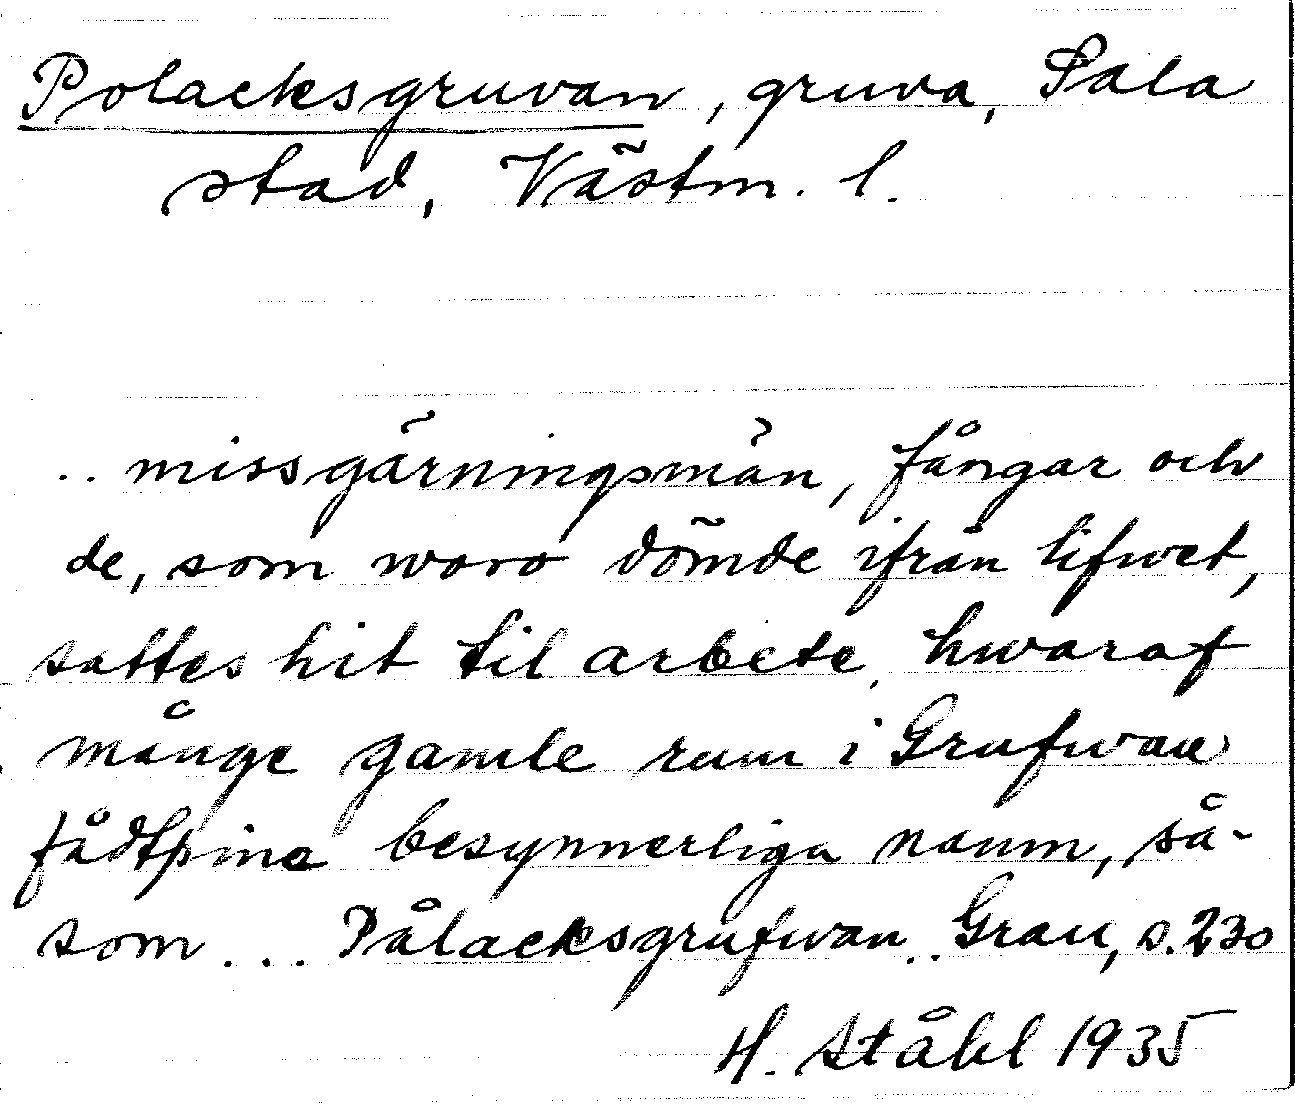 Polacksgruvan, gruva, Sala
stad, Västm. l.
.. missgärningsmän, fångar och
de, som woro dömde ifrån lifwet,
sattes hit til arbete, hwaraf
många gamle rum i Grufwan
fådt sina besynnerliga namn, så-
som ... Pålacksgrufwan .. Grau, s. 230
H. Ståhl 1935